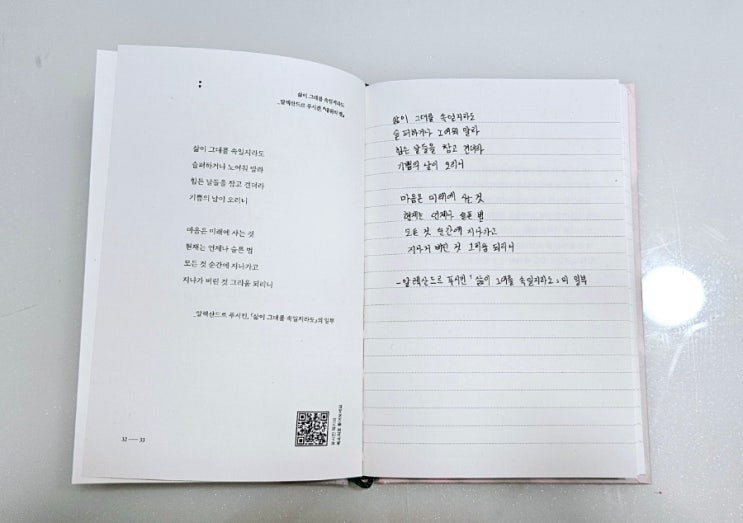 삶이 그대를 속일지라도
_알렉산드르 푸시킨,
삶이 그대를 속일지라도
슬퍼하거나 노여워 말라
힘든 날들을 참고 견뎌라
기쁨의 날이 오리니
마음은 미래에 사는 것
현재는 언제나 슬픈 법
모든 것 순간에 지나가고
지나가 버린 것 그리움 되리니
_알렉산드르 푸시킨, 「삶이 그대를 속일지라도」의 일부
32 — 33
삶이 그대를 속일지라도
슬퍼하거나 노여워 말라
힘든 날들을 참고 견뎌라
기쁨의 날이 오리니
마음은 미래에 사는 것
현재는 언제나 슬픈 법
모든 것 순간에 지나가고
지나가 버린 것 그리움 되리니
_알렉산드르 푸시킨 「삶이 그대를 속일지라도」의 일부